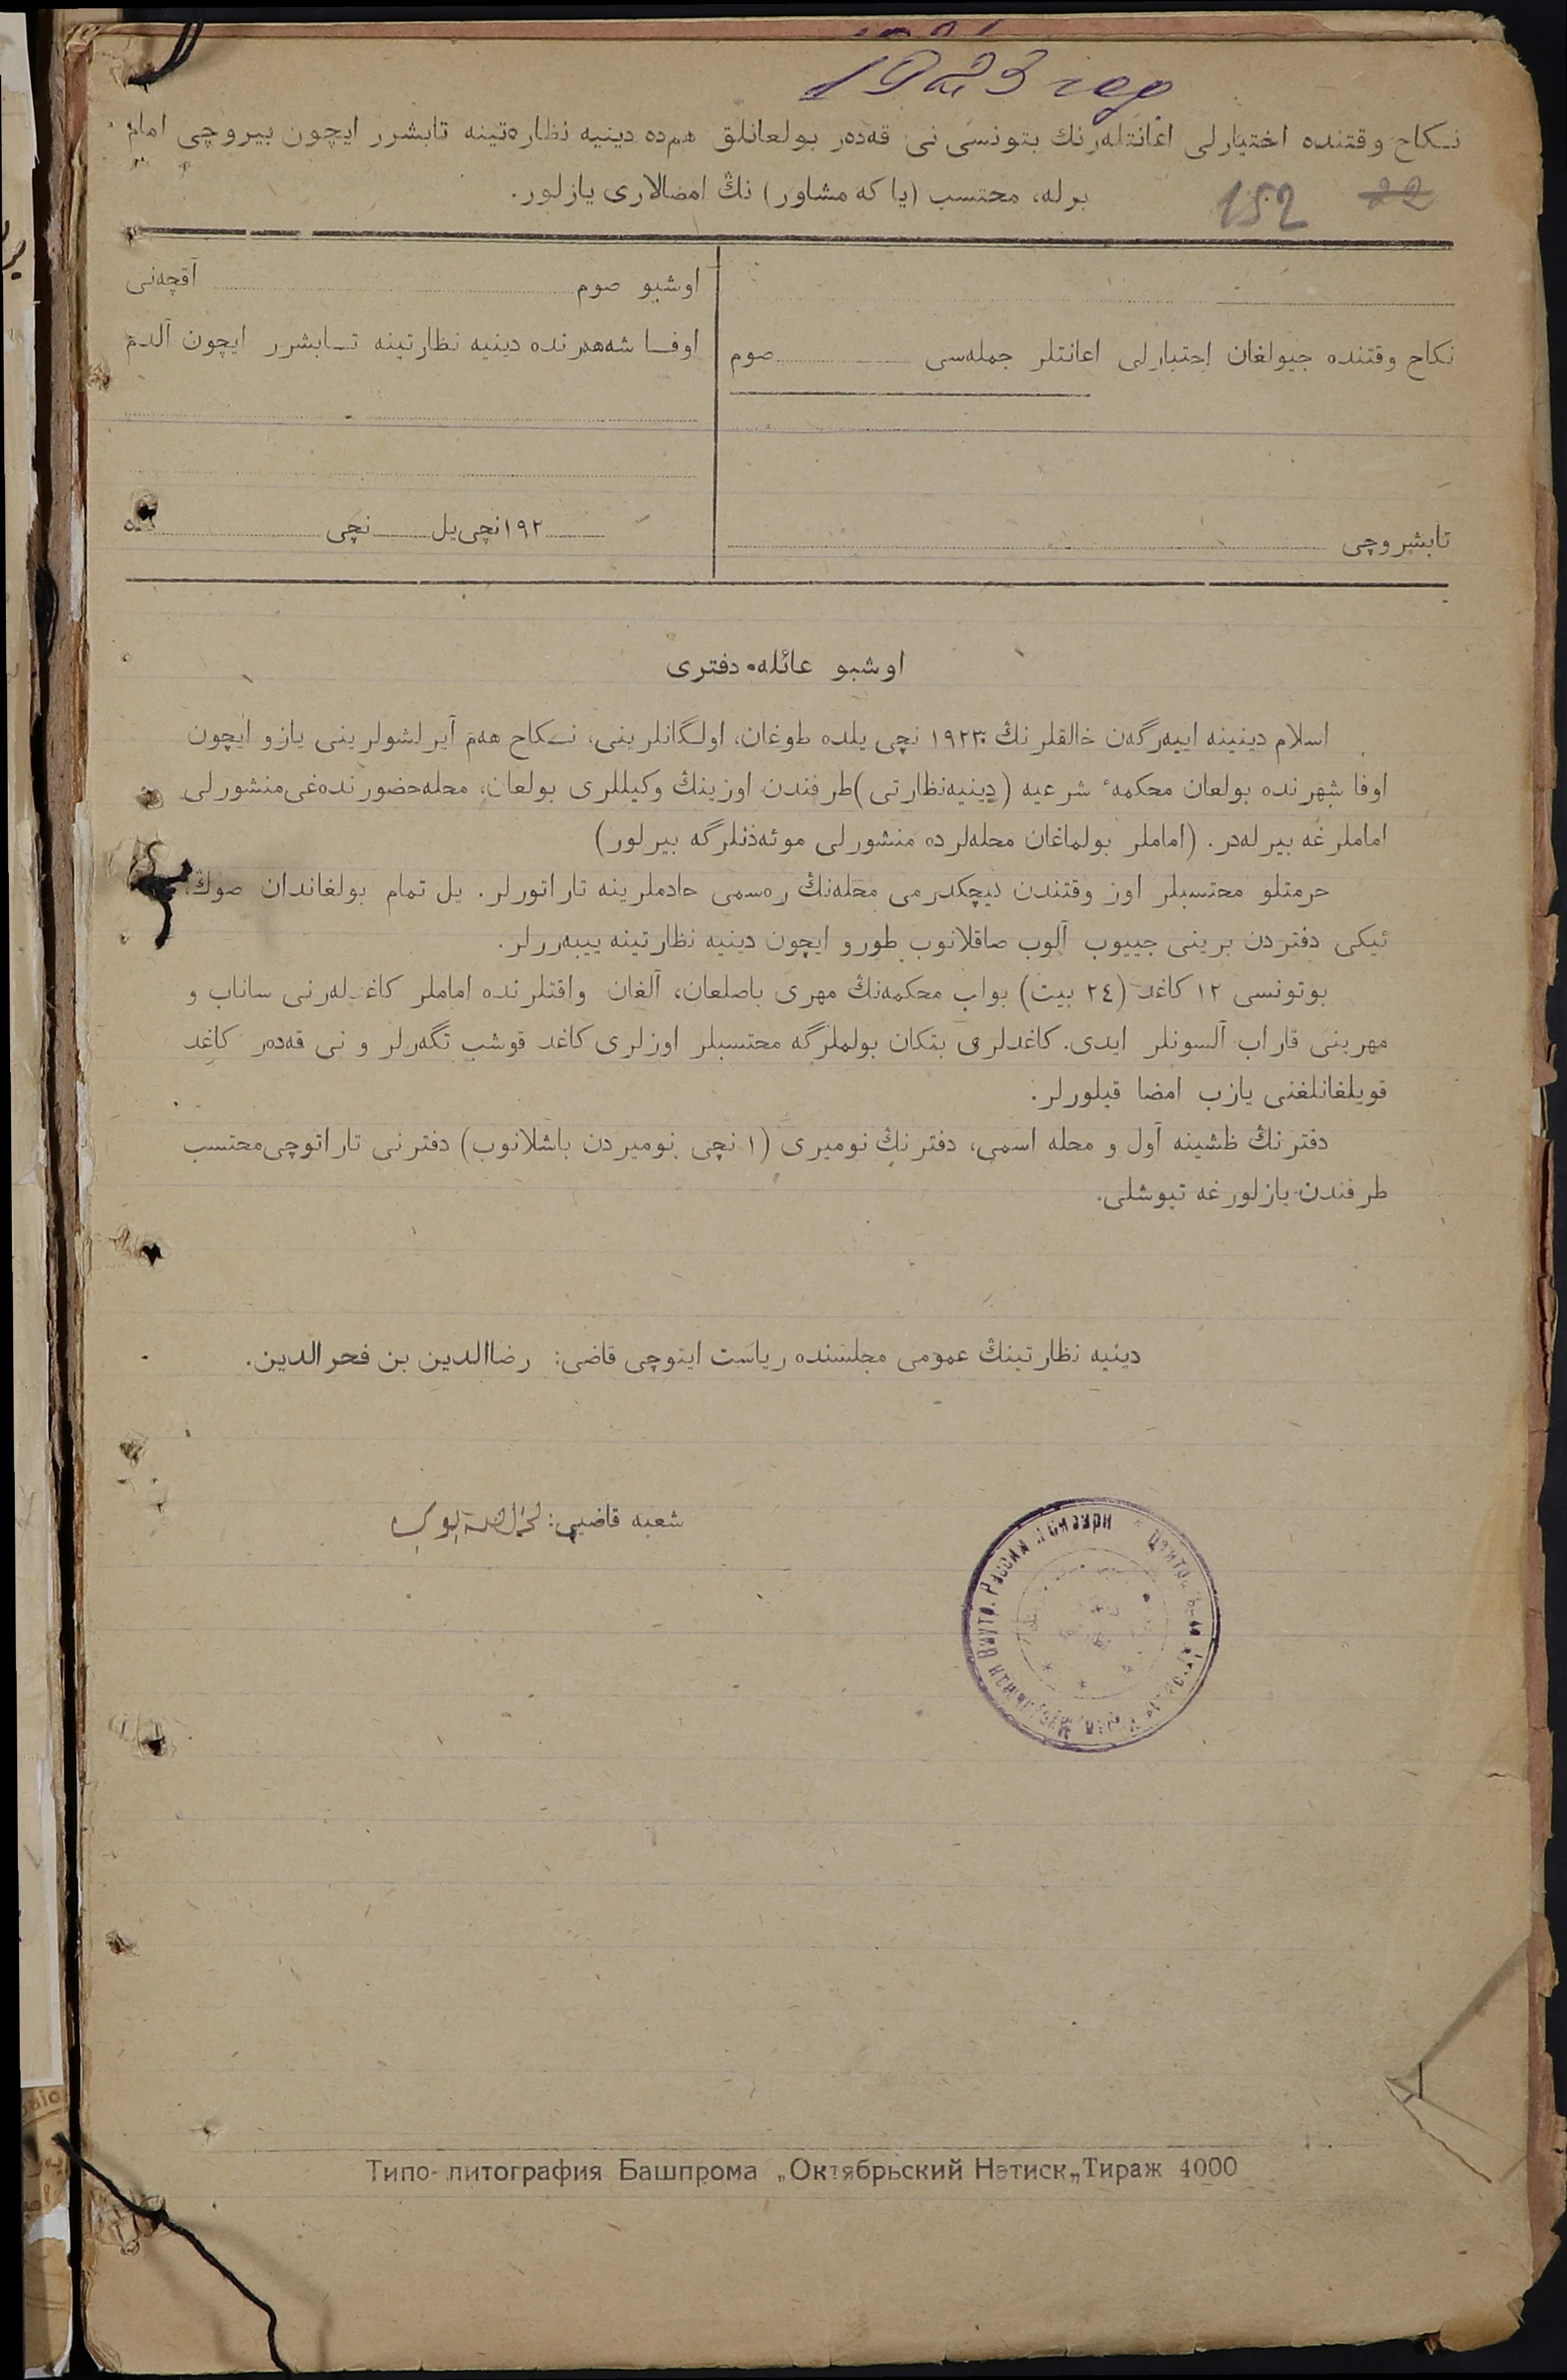 1923 год
نـكاح وقتنده اختيارلی اعانتلەرنك بتونسی نی قەدەر بولعانلق هم‌ده دينيه نظارەتينه تابشرر ايچون بيروچی امام
برله، محتسب (يا كه مشاور) نڭ امضالاری يازلور.
152 22
نكاح وقتنده جيولغان اختيارلی اعانتلر جمله‌سی صوم
تابشروچی
اوشبو صوم آقچەنی
اوفـا شەهرنده دينيه نظارتينه تـابشرر ايچون آلدم
١٩٢ نچی يل نچی ده
اوشبو عائله دفتری
اسلام دينينه اييەرگەن خالقلرنڭ ١٩٢٣ نچی يلده طوغان، اولگانلرينی، نـكاح هەم آيرلشولرينی يازو ايچون
اوفا شهرنده بولعان محكمهٔ شرعيه (دينيه‌نظارتی) طرفندن اوزينڭ وكيللری بولعان، محله‌حضورنده‌غی منشورلی
اماملرغه بيرلەدر. (اماملر بولماغان محلەلرده منشورلی موئەذنلرگه بيرلور)
حرمتلو محتسبلر اوز وقتندن كيچكدرمی محلەنڭ رەسمی خادملرينه تاراتورلر. يل تمام بولغاندان صوڭ،
ئيكی دفتردن برينی جييوب آلوب صاقلانوب طورو ايچون دينيه نظارتينه ييبەررلر.
بوتونسی ١٢ كاغد (٢٤ بيت) بواب محكمەنڭ مهری باصلعان، آلغان واقتلرنده اماملر كاغدلەرنی ساناب و
مهرينی قاراب آلسونلر ايدی. كاغدلری بتكان بولملرگه محتسبلر اوزلری كاغد قوشب تگەرلر و نی قەدەر كاغد
قويلغانلغنی يازب امضا قيلورلر.
دفترنڭ طشينه آول و محله اسمی، دفترنڭ نوميری (١ نچی نوميردن باشلانوب) دفترنی تاراتوچی محتسب
طرفندن يازلورغه تيوشلی.
دينيه نظارتينڭ عمومی مجلسنده رياست ايتوچی قاضی: رضاالدين بن فحرالدين.
شعبه قاضيی:
Типо-литография Башпрома „Октябрьский Натиск„ Тираж 4000